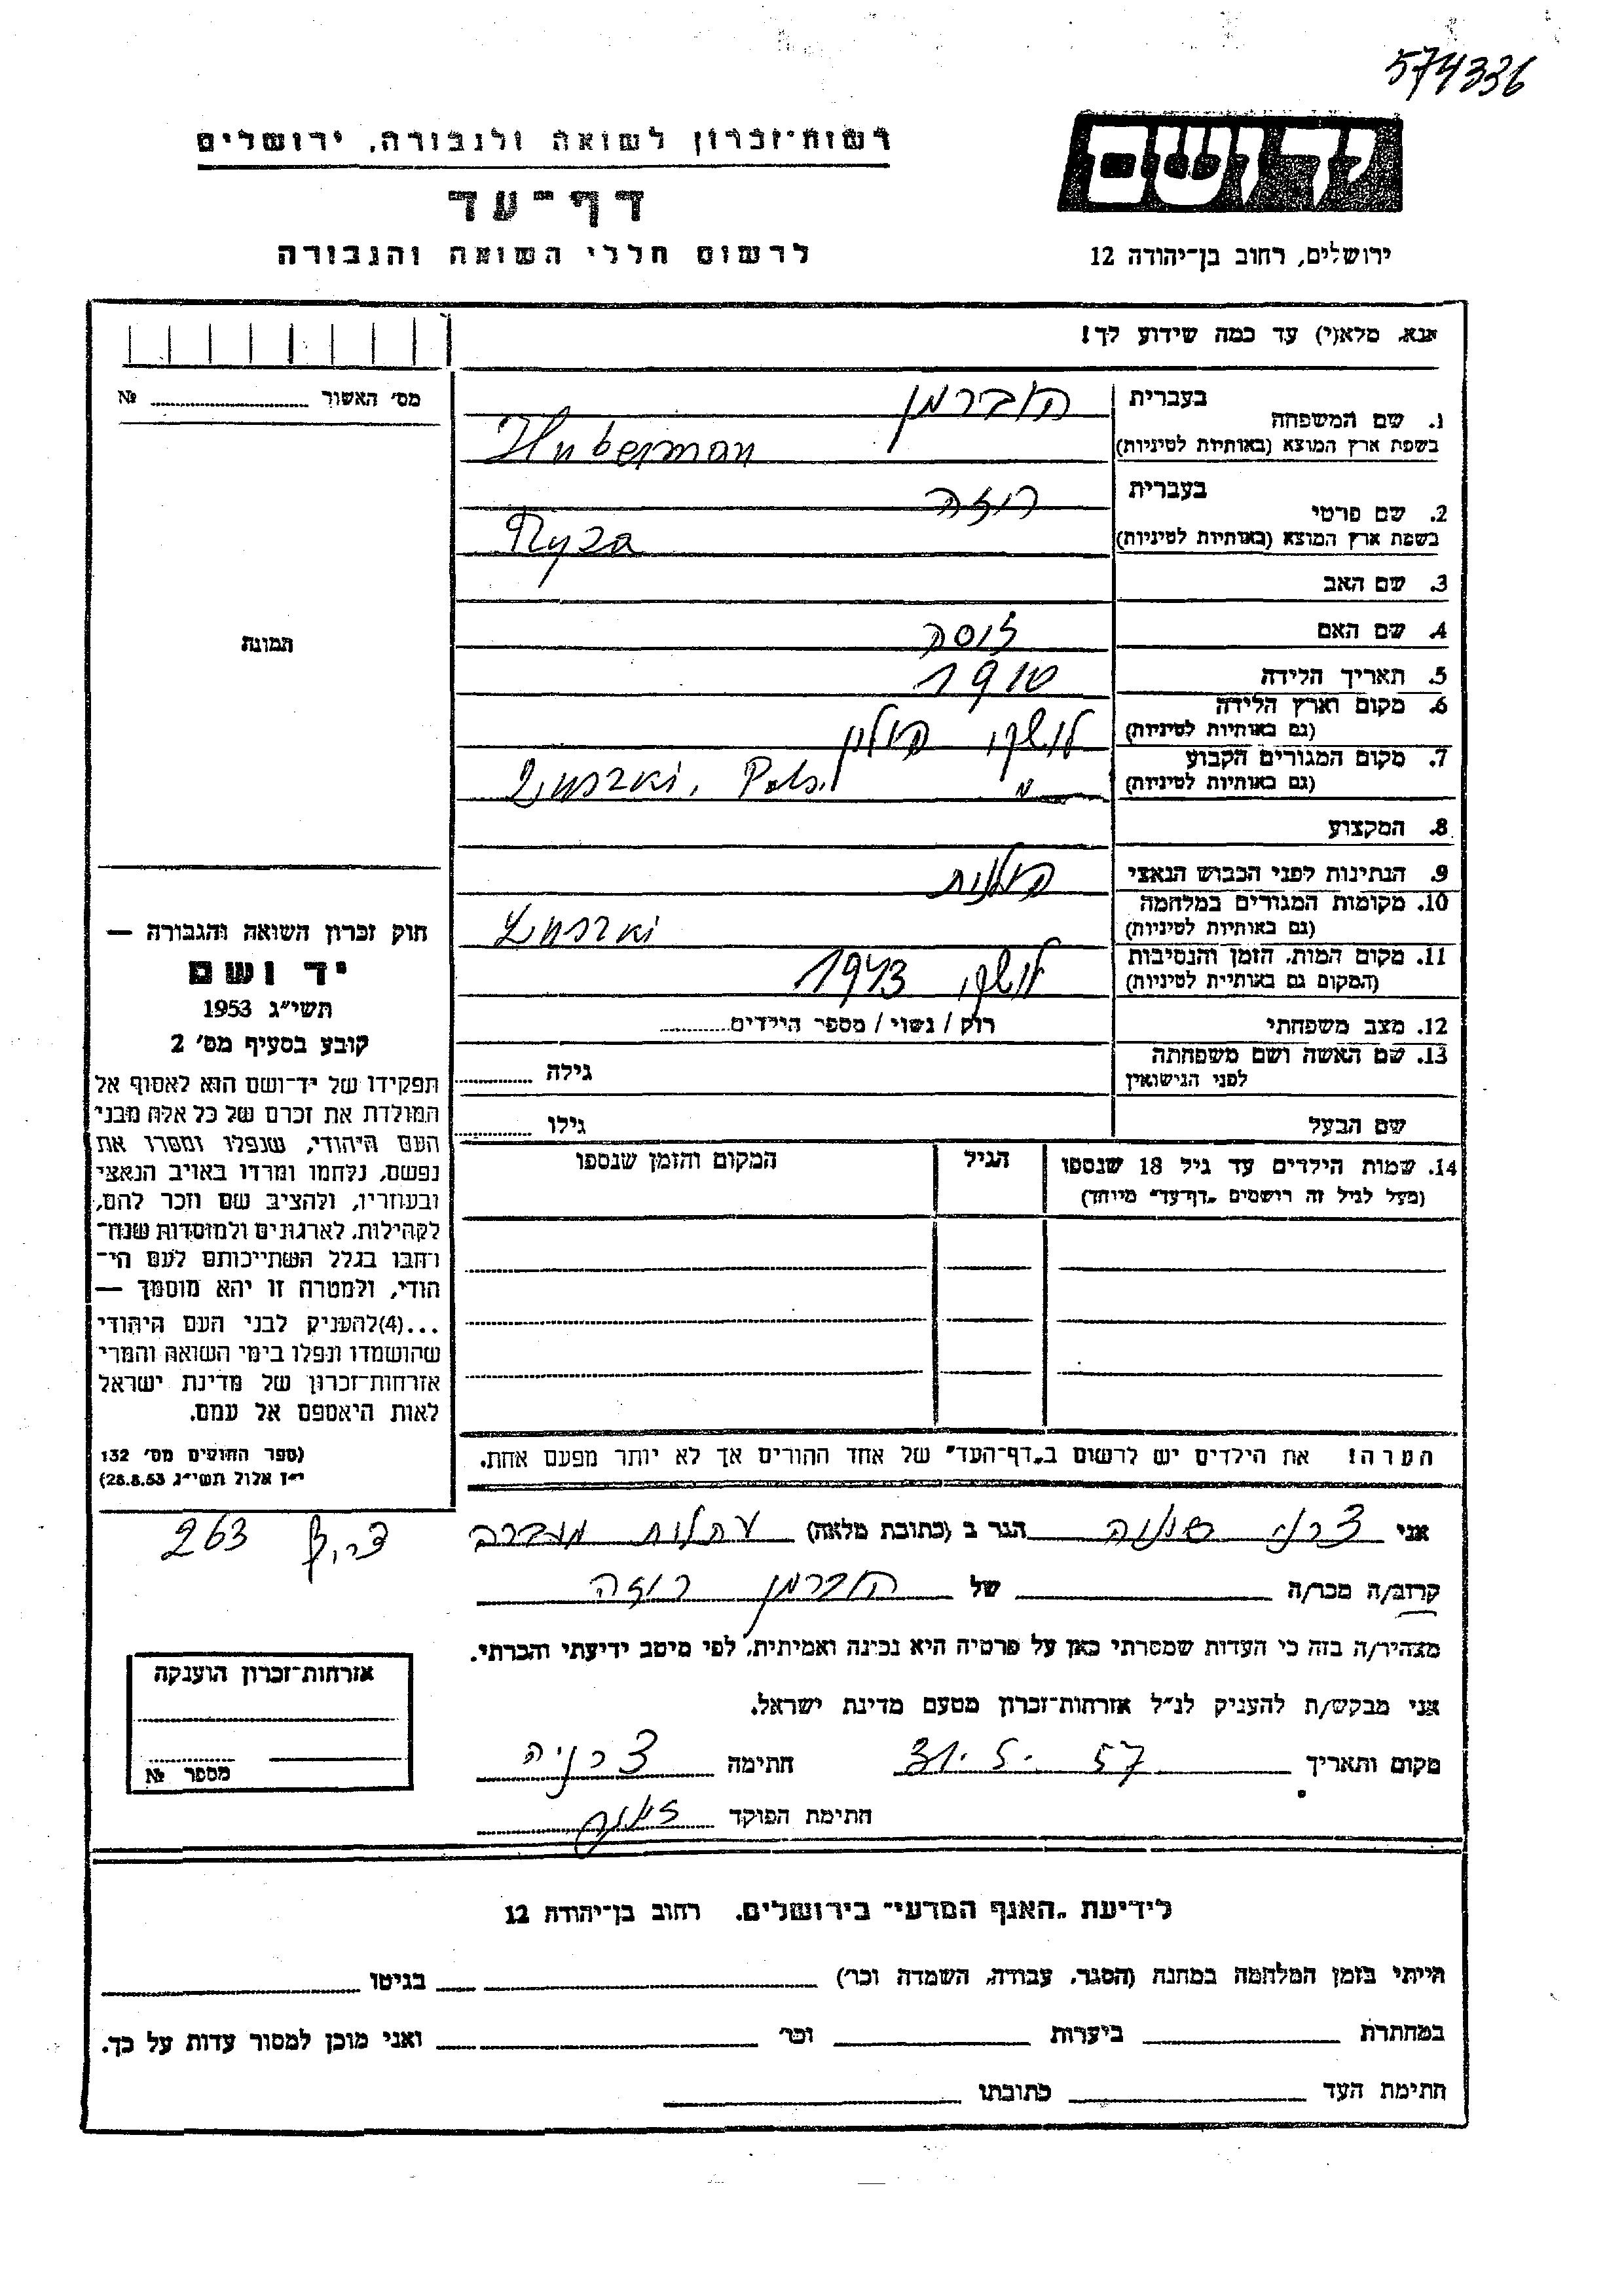 574336
רשות־זכרון לשואה ולגבורה, ירושלים
דף־עד
לרשום חללי השואה והגבורה
יד ושם
ירושלים, רחוב בן־יהודה 12
אנא, מלא(י) עד כמה שידוע לך!
מס' האשור № 
1. שם המשפחה בעברית הוברמן
בשפת ארץ המוצא (באותיות לטיניות) Huberman
2. שם פרטי בעברית רוזה
בשפת ארץ המוצא (באותיות לטיניות) Ryza
3. שם האב
4. שם האם
5. תאריך הלידה 1910
6. מקום וארץ הלידה פולין
(גם באותיות לטיניות)
7. מקום המגורים הקבוע
(גם באותיות לטיניות)
8. המקצוע
9. הנתינות לפני הכבוש הנאצי פולנית
10. מקומות המגורים במלחמה
(גם באותיות לטיניות)
11. מקום המות, הזמן והנסיבות 1943
(המקום גם באותיות לטיניות)
12. מצב משפחתי רווק / נשוי / מספר הילדים
13. שם האשה ושם משפחתה גילה
לפני הנישואין
שם הבעל גילו
14. שמות הילדים עד גיל 18 שנספו הגיל המקום והזמן שנספו
(מעל לגיל זה רושמים „דף־עד" מיוחד)
הערה! את הילדים יש לרשום ב„דף־העד" של אחד ההורים אך לא יותר מפעם אחת.
תמונה
חוק זכרון השואה והגבורה —
יד ושם
תשי״ג 1953
קובע בסעיף מס' 2
תפקידו של יד־ושם הוא לאסוף אל
המולדת את זכרם של כל אלה מבני
העם היהודי, שנפלו ומסרו את
נפשם, נלחמו ומרדו באויב הנאצי
ובעוזריו, ולהציב שם וזכר להם,
לקהילות, לארגונים ולמוסדות שנח־
רבו בגלל השתייכותם לעם הי־
הודי, ולמטרה זו יהא מוסמך —
...(4)להעניק לבני העם היהודי
שהושמדו ונפלו בימי השואה והמרי
אזרחות־זכרון של מדינת ישראל
לאות היאספם אל עמם.
(ספר החוקים מס' 132
י״ז אלול תשי״ג 28.8.53)
263
אני הגר ב (כתובת מלאה) עתלית מעברה
קרוב/ה מכר/ה של הוברמן רוזה
מצהיר/ה בזה כי העדות שמסרתי כאן על פרטיה היא נכונה ואמיתית, לפי מיטב ידיעתי והכרתי.
אני מבקש/ת להעניק לנ״ל אזרחות־זכרון מטעם מדינת ישראל.
מקום ותאריך 31.5.57 חתימה
חתימת הפוקד
אזרחות־זכרון הוענקה
מספר №
לידיעת „האגף המדעי" בירושלים, רחוב בן־יהודה 12
הייתי בזמן המלחמה במחנה (הסגר, עבודה, השמדה וכו') בגיטו
במחתרת ביערות וכו' ואני מוכן למסור עדות על כך.
חתימת העד כתובתו